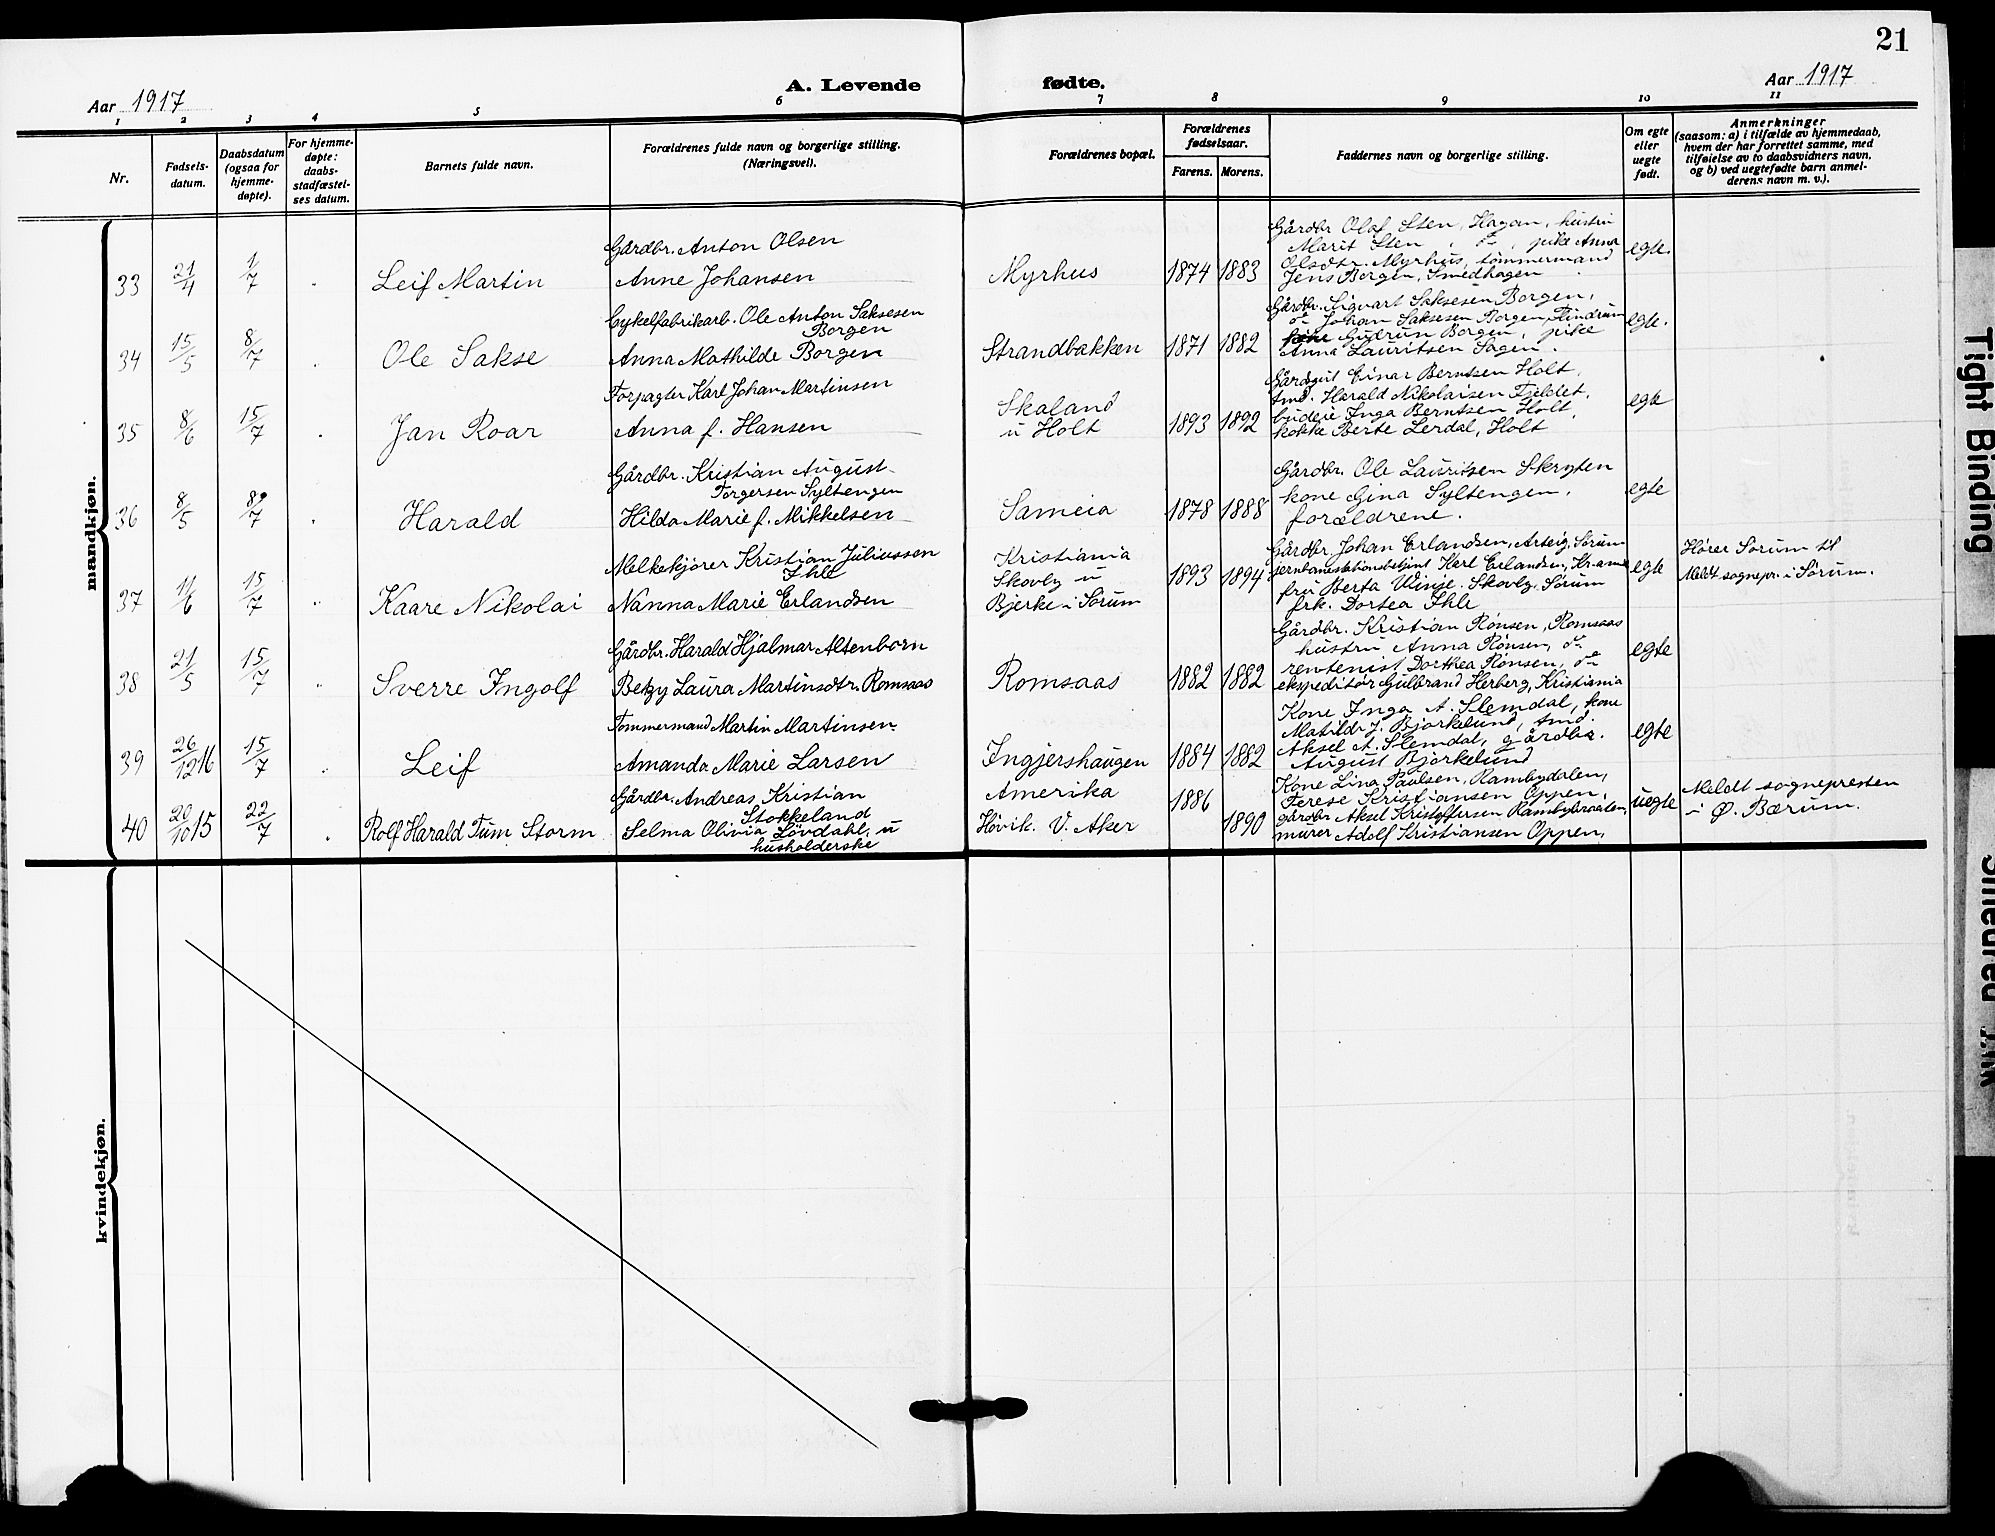 21
Aar 1917
A. Levende fødte.
Aar 1917
1 2 3 4 5 6 7 8 9 10 11
Nr.
Fødsels-
datum.
Daabsdatum
(ogsaa for
hjemme-
døpte).
For hjemme-
døpte:
daabs-
stadfæstel-
ses datum.
Barnets fulde navn.
Forældrenes fulde navn og borgerlige stilling.
(Næringsvei).
Forældrenes bopæl.
Forældrenes
fødselsaar.
Farens. Morens.
Faddernes navn og borgerlige stilling.
Om egte
eller
uegte
født.
Anmerkninger
(saasom: a) i tilfælde av hjemmedaab,
hvem der har forrettet samme, med
tilføielse av to daabsvidners navn,
og b) ved uegtefødte barn anmel-
derens navn m. v.).
mandkjøn.
33 21/4 1/7 Leif Martin
Gårdbr. Anton Olsen
Anne Johansen
Myrhus 1874 1883
Gårdbr Olaf Sten, Hagan, hustru
Marit Sten, do, pike Anna
Olsdtr. Myrhus, tømmermand
Jens Borgen, Smedhagen
egte.
34 15/5 8/7 Ole Sakse
Cykelfabrikarb. Ole Anton Saksesen
Borgen
Anna Mathilde Borgen
Strandbakken 1871 1882
Gårdbr. Sigvart Saksesen Borgen,
do Johan Saksesen Borgen,
Gudrun Borgen, pike
Anna Lauritsen Sagen.
egte.
35 8/6 15/7 Jan Roar
Forpagter Karl Johan Martinsen
Anna f. Hansen
Skaland
u Holt
1893 1892
Gårdgut Einar Berntsen Holt,
tmd. Harald Nikolaisen Fjeldet,
budeie Inga Berntsen Holt,
kokke Berte Lerdal, Holt
egte
36 8/5 8/7 Harald
Gårdbr. Kristian August
Torgersen Syltengen
Hilda Marie f. Mikkelsen
Sameia 1878 1888
Gårdbr. Ole Lauritsen Skryten
kone Gina Syltengen,
forældrene.
egte
37 11/6 15/7 Kaare Nikolai
Melkekjører Kristian Juliussen
Ihle
Nanna Marie Erlandsen
Kristiania
Skovly u
Bjerke i Sørum
1893 1894
Gårdbr. Johan Erlandsen, Arteig, Sørum
jernbanestationsbetjent Karl Erlandsen, Kr.ania
fru Berta Vinje. Skovly. Sørum
frk. Dortea Ihle
egte
Hører Sørum til
Meldt sognepr. i Sørum.
38 21/5 15/7 Sverre Ingolf
Gårdbr. Harald Hjalmar Altenborn
Betzy Laura Martinsdtr. Romsaas
Romsaas 1882 1882
Gårdbr. Kristian Rønsen, Romsaas
hustru Anna Rønsen, do
rentenist Dorthea Rønsen, do
ekspeditør Gulbrand Herberg, Kristiania
egte
39 26/12 16 15/7 Leif
Tømmermand Martin Martinsen
Amanda Marie Larsen
Ingjershaugen 1884 1882
Kone Inga A. Slemdal, kone
Matilde J. Bjørkelund, tmd.
Aksel A. Slemdal, gårdbr.
August Bjørkelund
egte
40 20/10 15 22/7 Rolf Harald Tum Storm
Gårdbr. Andreas Kristian
Stokkeland
Selma Olivia Løvdahl, u
husholderske
Amerika
Høvik. V. Aker
1886 1890
Kone Lina Paulsen, Rambydalen,
Terese Kristiansen Oppen,
gårdbr Aksel Kristoffersen
murer Adolf Kristiansen Oppen,
uegte
Meldt sognepresten
i Ø. Bærum.
kvindekjøn.
Tight Binding